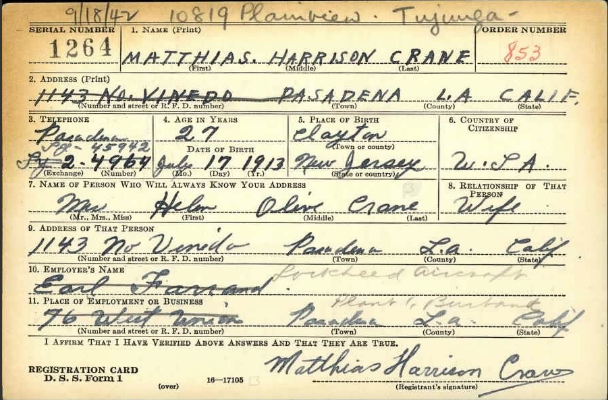 9/18/42 10819 Plainview. Tujunga-
SERIAL NUMBER 1. NAME (Print) ORDER NUMBER
1264 MATTHIAS. HARRISON CRANE 853
(First) (Middle) (Last)
2. ADDRESS (Print)
1143 NO. VINEDO PASADENA L.A CALIF.
(Number and street or R. F. D. number) (Town) (County) (State)
3. TELEPHONE 4. AGE IN YEARS 5. PLACE OF BIRTH 6. COUNTRY OF CITIZENSHIP
Pasadena 27 Clayton U.S.A.
45942 DATE OF BIRTH (Town or county)
Sy-2-4964 July 17 1913 New Jersey
(Exchange) (Number) (Mo.) (Day) (Yr.) (State or country)
7. NAME OF PERSON WHO WILL ALWAYS KNOW YOUR ADDRESS 8. RELATIONSHIP OF THAT PERSON
Mrs Helen Olive Crane Wife
(Mr., Mrs., Miss) (First) (Middle) (Last)
9. ADDRESS OF THAT PERSON
1143 No Vinedo Pasadena L.a. Calif
(Number and street or R. F. D. number) (Town) (County) (State)
10. EMPLOYER'S NAME
Earl Farrand. Lockheed Aircraft
11. PLACE OF EMPLOYMENT OR BUSINESS Plant 1, Burbank
76 West Union Pasadena L.a Calif
(Number and street or R. F. D. number) (Town) (County) (State)
I AFFIRM THAT I HAVE VERIFIED ABOVE ANSWERS AND THAT THEY ARE TRUE.
REGISTRATION CARD Matthias Harrison Crane
D. S. S. Form 1 (over) 16—17105 (Registrant's signature)